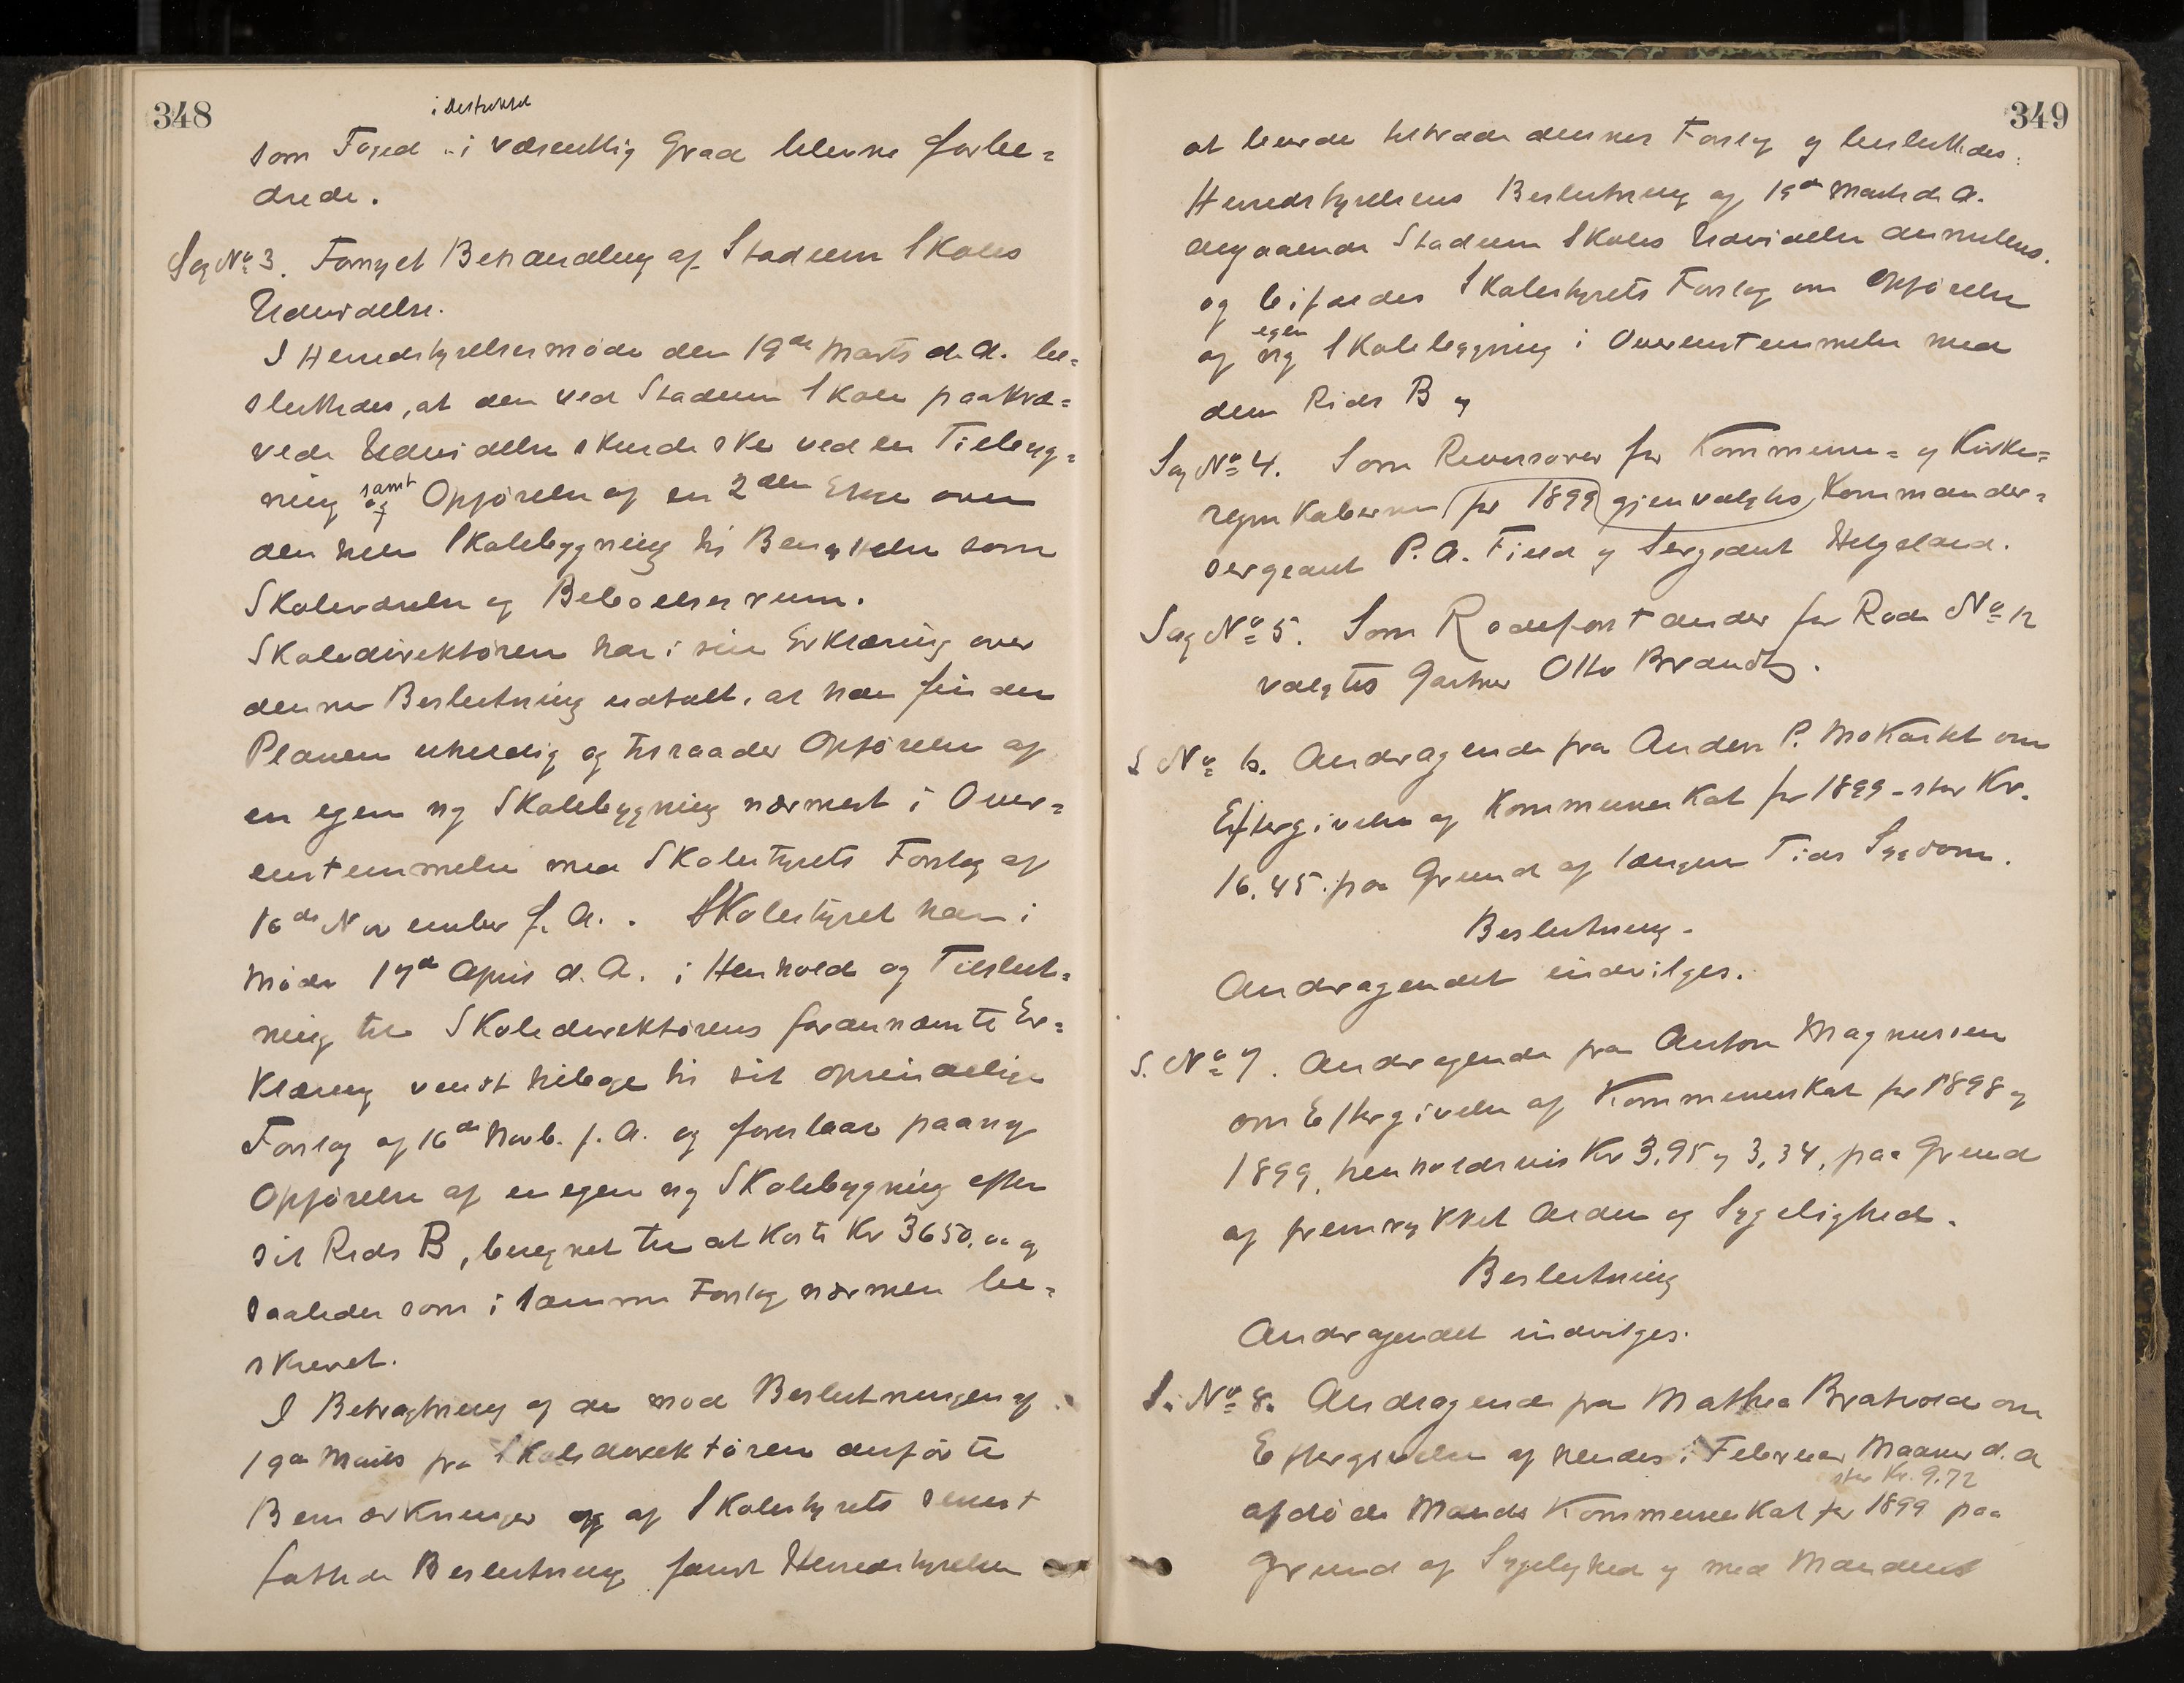 348
i
som Foged i væsentlig Grad bleve forbe=
drede.
Sag No 3. Fornyet Behandling af Stadum Skoles
Udvidelse.
I Herredstyrelsesmøde den 19de Marts d. A. be=
sluttedes, at den ved Stadum Skole paakræ=
vede Udvidelse skulde ske ved en Tilbyg=
ning samt og Opførelse af en 2den Etage over
den hele Skolebygning til Benyttelse som
Skoleværelse og Beboelsesrum.
Skoledirektøren har i sin Erklæring over
denne Beslutning udtalt, at han finder
Planen uheldig og tilraader Opførelse af
en egen ny Skolebygning nærmest i Over=
enstemmelse med Skolestyrets Forslag af
16de November f. A.. Skolestyret har i
Møde 17de April d. A. i Henhold og Tilslut=
ning til Skoledirektørens forannævnte Er=
klæring vendt tilbage til sit oprindelige
Forslag af 16de Novb. f. A. og foreslaar paany
Opførelse af en egen ny Skolebygning efter
sit Rids B, beregnet til at koste Kr 3650.00 og
saaledes som i samme Forslag nærmere be=
skrevet.
I Betragtning af de mod Beslutningen af
19de Marts fra Skoledirektøren anførte
Bemærkninger og af Skolestyrets senest
fattede Beslutning fandt Herredstyrelsen
349
at burde tiltræde dennes Forslag og besluttedes:
Herredstyrelsens Beslutning af 19de Marts d. A.
angaaende Stadum Skoles Udvidelse annulleres.
og bifaldes Skolestyrets Forslag om Opførelse
egen
af ny Skolebygning i Overenstemmelse med
dens Rids B og
Sag No 4. Som Revisorer for Kommune= og Kirke=
regnskaberne for 1899 gjenvalgtes Kommander=
sergeant P. A. Field og Sergeant Helgeland.
Sag No 5. Som Rodeforstander for Rode No 12
valgtes Gartner Otto Brandt.
S No 6. Andragende fra Anders P. Mokastet om
Eftergivelse af Kommuneskat for 1899 - stor Kr.
16.45. paa Grund af længere Tids Sygdom.
Beslutning.
Andragendet indvilges.
S. No 7. Andragende fra Anton Magnussen
om Eftergivelse af Kommuneskat for 1898 og
1899, henholdsvis Kr 3.95 og 3.34, paa Grund
af fremrykket Alder og Sygelighed.
Beslutning
Andragendet indvilges.
S. No 8. Andragende fra Mathea Bratvold om
Eftergivelse af hendes i Februar Maaned d. A
stor Kr. 9.72
afdøde Mands Kommuneskat for 1899 paa
Grund af Sygelighed og med Mandens